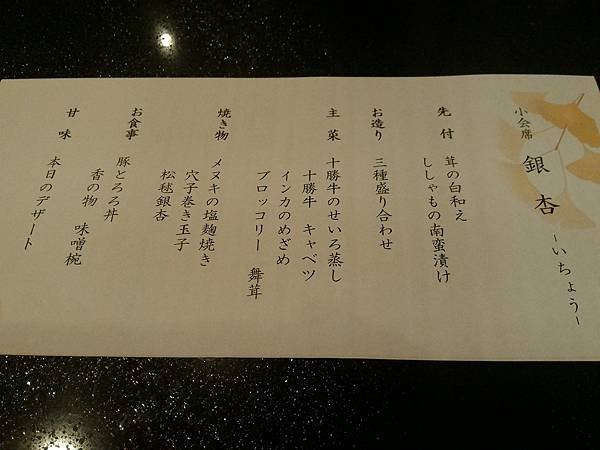 小会席 銀杏 －いちょう－
先付 茸の白和え
ししゃもの南蛮漬け
お造り 三種盛り合わせ
主菜 十勝牛のせいろ蒸し
十勝牛 キャベツ
インカのめざめ
ブロッコリー 舞茸
焼き物 メヌキの塩麹焼き
穴子巻き玉子
松毬銀杏
お食事 豚とろろ丼
香の物 味噌椀
甘味 本日のデザート